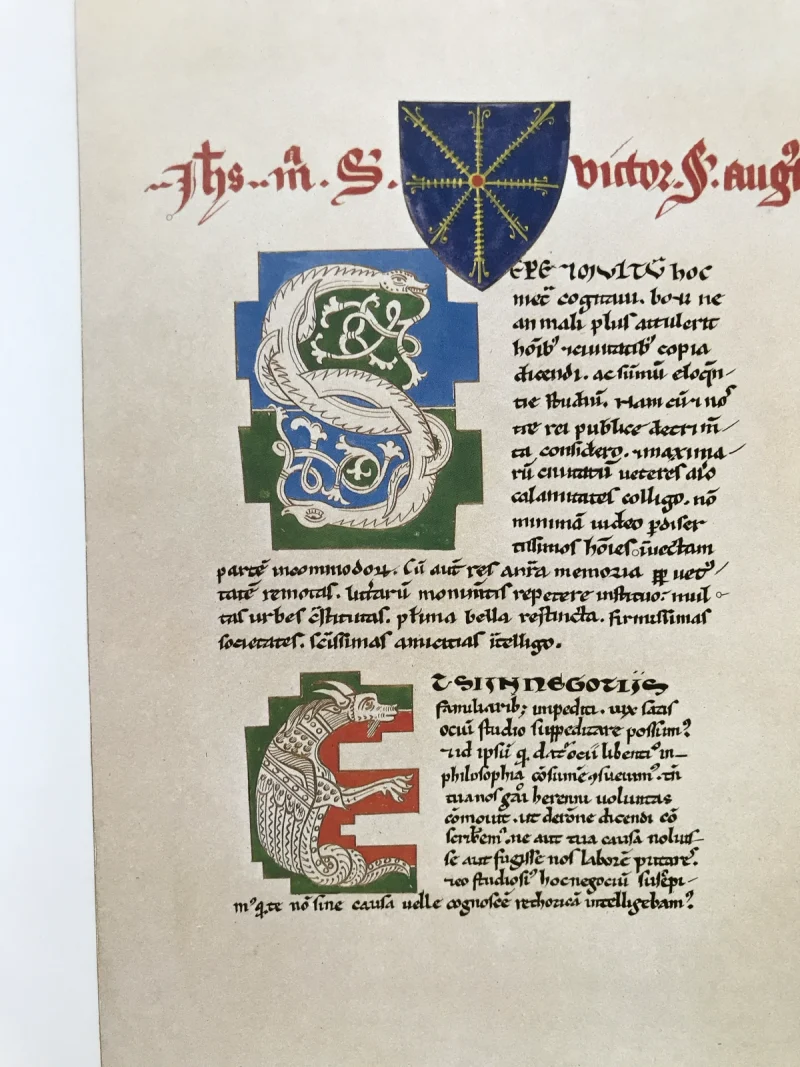 Jhs . m̄ª . S. victor . S. augꝰ
SEPE ⁊ MVLTŪ hoc
mecū cogitaui. boni ne
an mali plus attulerit
hōibꝰ ⁊ ciuitatibꝰ copia
dicendi. ac sūmū eloqn̄-
tie studiū. Nam cū ⁊ nos
tre rei publice detrim̄
ta considero. ⁊ maxima-
rū ciuitatū ueteres aīo
calamitates colligo. nō
minimā uideo ꝑ diser
tissimos hōies īuectam
partē incommodoꝝ. Cū aut̄ res a nr̄a memoria ꝓpt̄ uetꝰ
tatē remotas. litterarū monumtis repetere instituo. mul
tas urbes c̄stitutas. pl̄ima bella restincta. firmissimas
societates. sc̄issimas amicitias ītelligo.
ET SI IN NEGOTIJS
familiaribꝫ impediti. uix satis
ocīu studio suppeditare possimꝰ
⁊ id ipsū q̄ datˀ ocii libentiꝰ in-
philosophia cōsumē ꝯsueuimꝰ. tn̄
tua nos gai herenni uoluntas
cōmouit. ut de rōne dicendi cō
scribemꝰ. ne aut tua causa noluis-
se aut fugisse nos laborē putareˀ.
⁊ eo studiosiꝰ hoc negociū suscepi-
mꝰ q̄. te nō sine causa uelle cognoscē rethoricā intelligebamꝰ